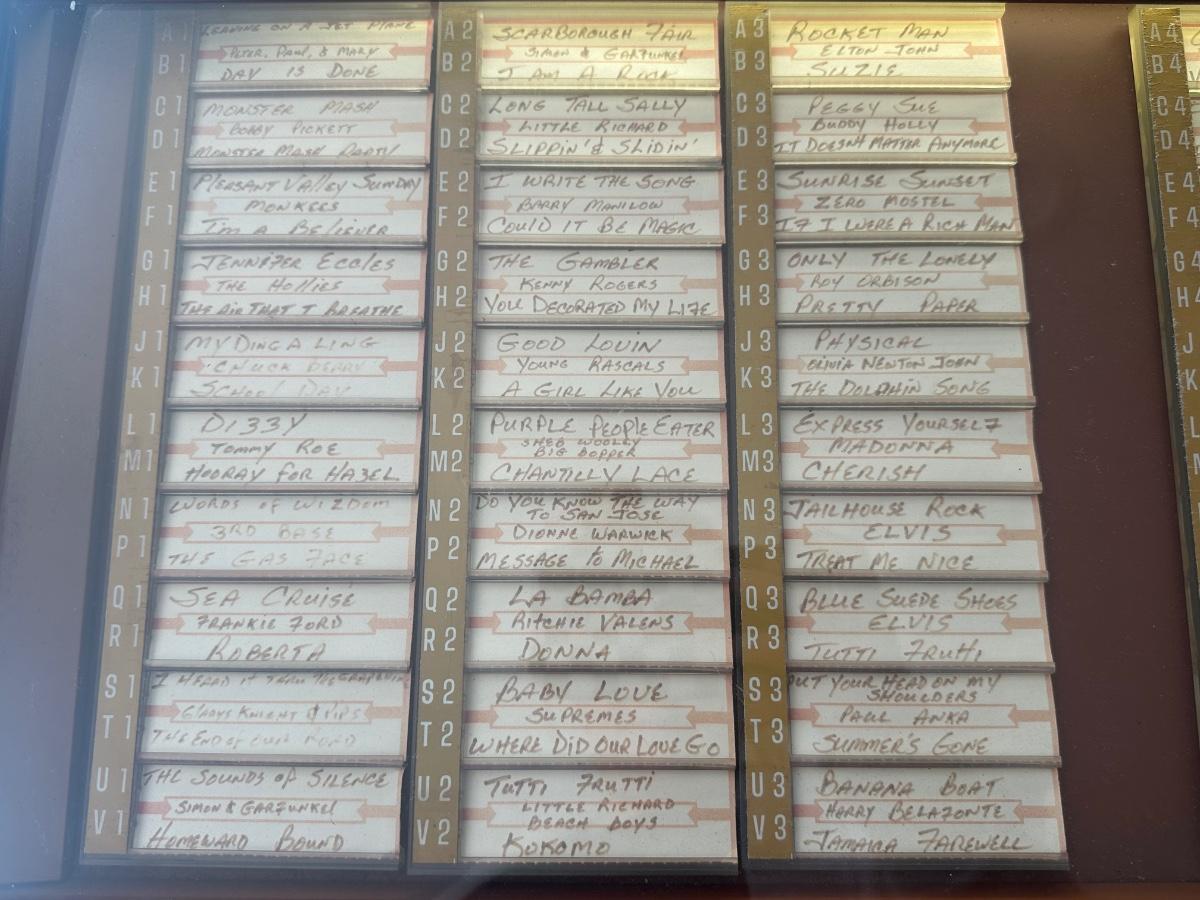 A1
LEAVING ON A JET PLANE
PETER, PAUL, & MARY
B1
DAY IS DONE
C1
MONSTER MASH
BOBBY PICKETT
D1
MONSTER MASH PARTY
E1
PLEASANT VAllEY SUNDAY
MONKEES
F1
I'm A BElIEVER
G1
JENNIFER ECCLES
THE HOLLIES
H1
THE AIR THAT I BREATHE
J1
MY DING A LING
CHUCK BERRY
K1
SCHOOL DAY
L1
DIZZY
TOMMY ROE
M1
HOORAY FOR HAZEL
N1
WORDS OF WIZDOM
3RD BASE
P1
THE GAS FACE
Q1
SEA CRUISE
FRANKIE FORD
R1
ROBERTA
S1
I HEARD IT THRU THE GRAPEVINE
GLADYS KNIGHT & PIPS
T1
THE END OF OUR ROAD
U1
THE SOUNDS OF SILENCE
SIMON & GARFUNKEL
V1
HOMEWARD BOUND
A2
SCARBOROUGH FAIR
SIMON & GARFUNKEL
B2
I AM A ROCK
C2
LONG TALL SALLY
LITTLE RICHARD
D2
SLIPPIN' & SLIDIN'
E2
I WRITE THE SONG
BARRY MANILOW
F2
COULD IT BE MAGIC
G2
THE GAMBLER
KENNY ROGERS
H2
YOU DECORATED MY LIFE
J2
GOOD LOVIN
YOUNG RASCALS
K2
A GIRL LIKE YOU
L2
PURPLE PEOPLE EATER
SHEB WOOLEY
BIG BOPPER
M2
CHANTILLY LACE
N2
DO YOU KNOW THE WAY
TO SAN JOSE
DIONNE WARWICK
P2
MESSAGE to MICHAEL
Q2
LA BAMBA
RITCHIE VALENS
R2
DONNA
S2
BABY LOVE
SUPREMES
T2
WHERE DID OUR LOVE GO
U2
TUTTI FRUTTI
LITTLE RICHARD
BEACH BOYS
V2
KOKOMO
A3
ROCKET MAN
ELTON JOHN
B3
SUZIE
C3
PEGGY SUE
BUDDY HOLLY
D3
IT DOESNT MATTER ANYMORE
E3
SUNRISE SUNSET
ZERO MOSTEL
F3
IF I WERE A RICH MAN
G3
ONLY THE LONELY
ROY ORBISON
H3
PRETTY PAPER
J3
PHYSICAL
OLIVIA NEWTON JOHN
K3
THE DOLPHIN SONG
L3
EXPRESS YOURSELF
MADONNA
M3
CHERISH
N3
JAILHOUSE ROCK
ELVIS
P3
TREAT ME NICE
Q3
BLUE SUEDE SHOES
ELVIS
R3
TUTTI FRUTTI
S3
PUT YOUR HEAD ON MY
SHOULDERS
PAUL ANKA
T3
SUMMER'S GONE
U3
BANANA BOAT
HARRY BELAFONTE
V3
JAMAICA FAREWELL
A4
B4
C4
D4
E4
F4
G4
H4
J
K
L
M